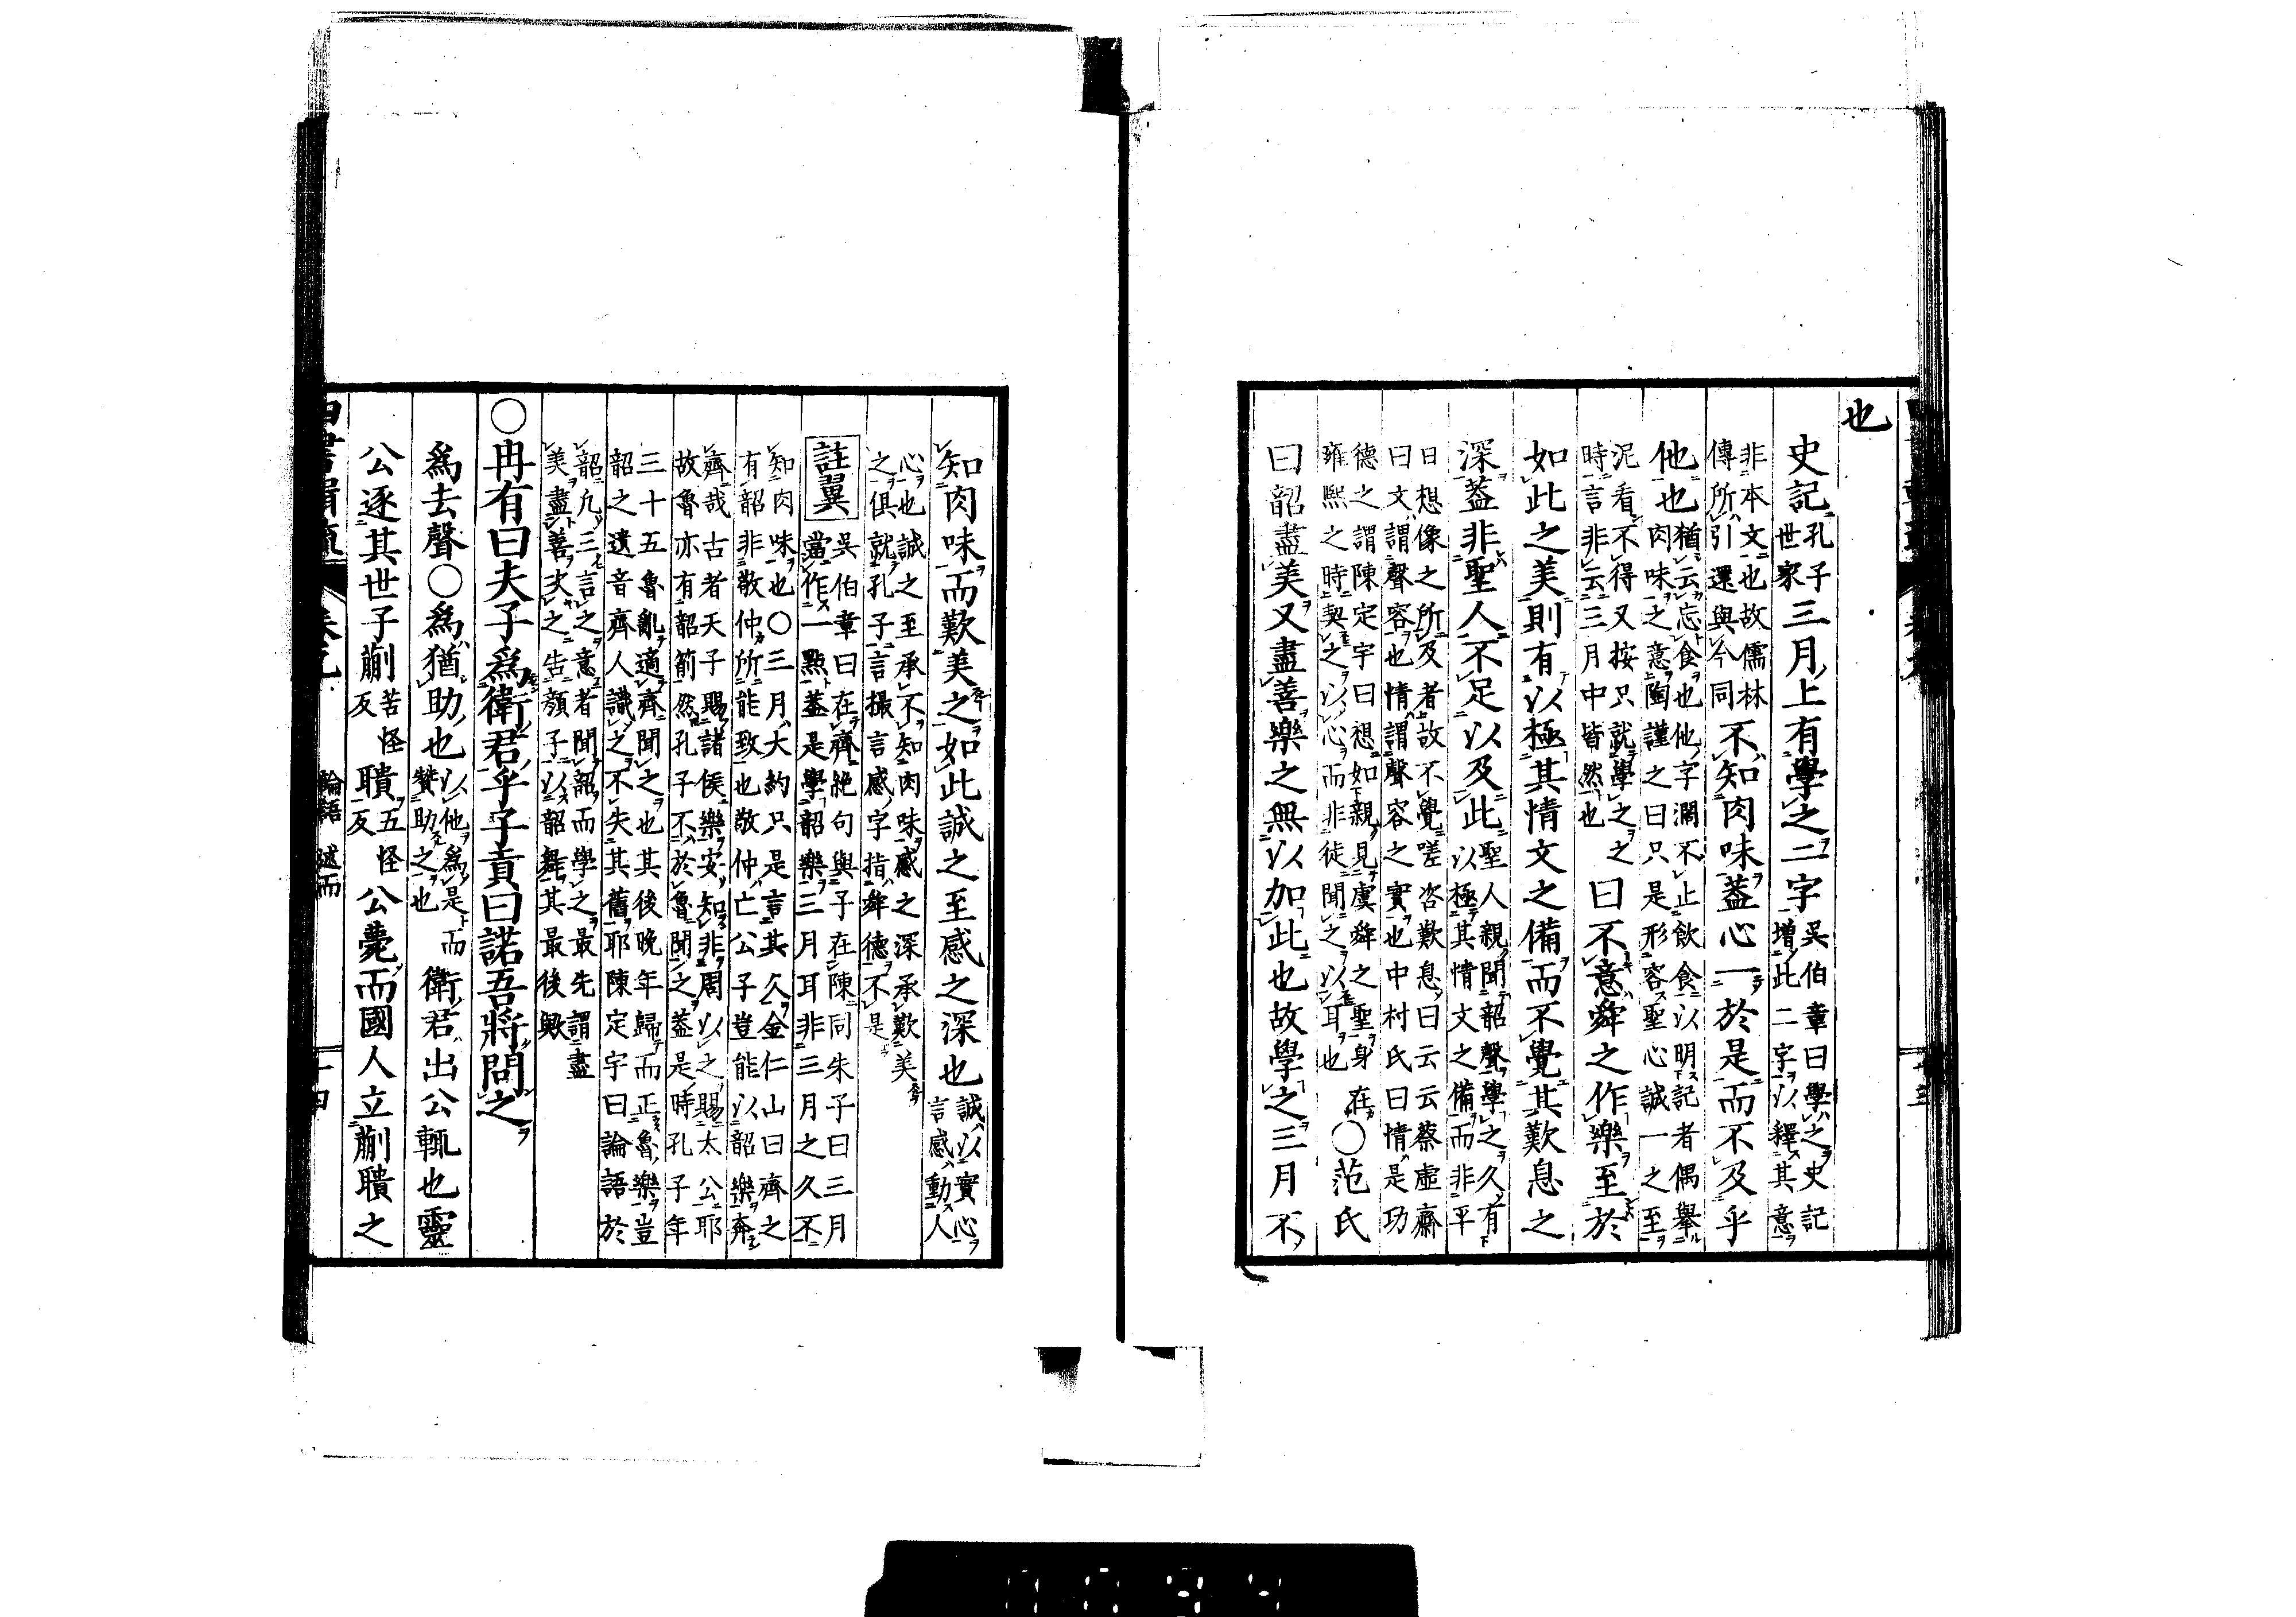 也
史記孔子世家三月上有學之二字吳伯章曰學之史記增此二字以釋其意
非本文也故儒林傳所引還與今同不知肉味蓋心一於是而不及乎
他也猶云忘食也他字濶不止飲食以明記者偶舉肉味之意陶謹之曰只是形容聖心誠一之至
泥看不得又按只就學之時言非云三月中皆然也之曰不意舜之作樂至於
如此之美則有以極其情文之備而不覺其歎息之
深蓋非聖人不足以及此聖人親聞韶聲學之久有以極其情文之備而非平
日想像之所及者故不覺嗟咨歎息曰云云蔡虛齋曰文謂聲容也情謂聲容之實也中村氏曰情是功
德之謂陳定宇曰想如親見虞舜之聖身在雍熙之時契之以心而非徒聞之以耳也○范氏
曰韶盡美又盡善樂之無以加此也故學之三月不
知肉味而歎美之如此誠之至感之深也誠以實心言感動人
心也誠之至承不知肉味感之深承歎美之俱就孔子言撮言感字指舜德不是
註翼吳伯章曰在齊絕句與子在陳同朱子曰三月當作一點蓋是學韶樂三月耳非三月之久不
知肉味也○三月大約只是言其久金仁山曰齊之有韶非敬仲所能致也敬仲亡公子豈能以韶樂奔
齊哉古者天子賜諸侯樂安知非周以之賜太公耶故魯亦有韶箾然孔子不於魯聞之蓋是時孔子年
三十五魯亂適齊聞之也其後晚年歸而正魯樂豈韶之遺音齊人識之不失其舊耶陳定宇曰論語於
韶凡三言之意者聞韶而學之最先謂盡美盡善次之告顏子以韶舞其最後歟
○冉有曰夫子爲衛君乎子貢曰諾吾將問之
爲去聲○爲猶助也以他爲是而贊助之也衛君出公輒也靈
公逐其世子蒯苦怪反聵五怪反公薨而國人立蒯聵之
論語 述而